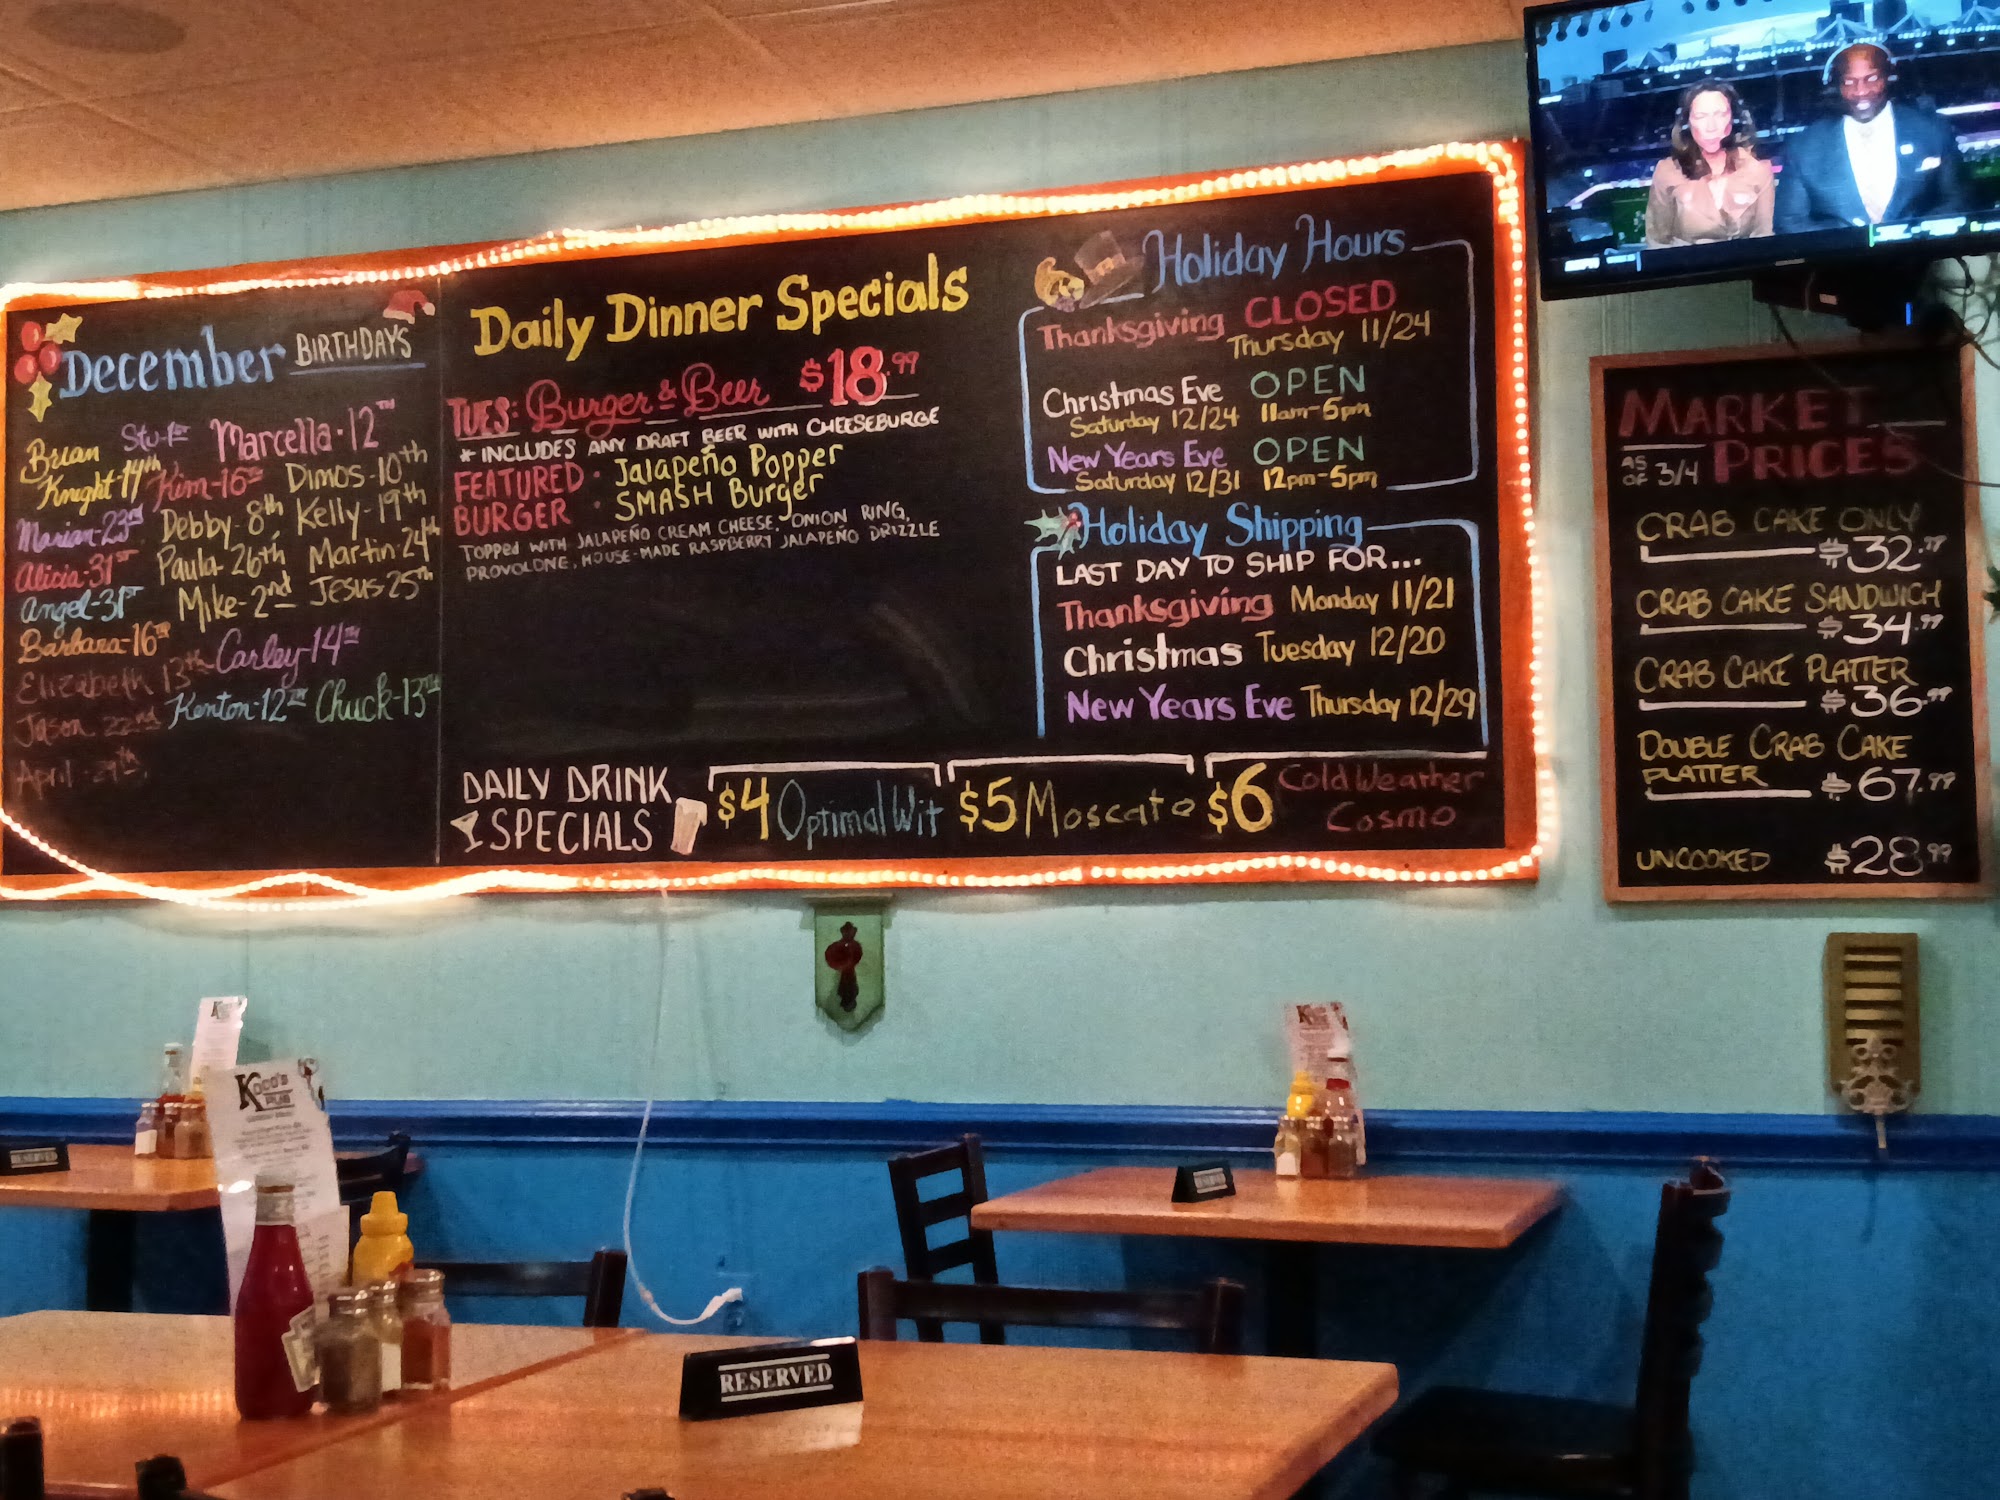 December BIRTHDAYS
Brian Knight-14th
Stu-1st
Marcella-12TH
Kim-16th
Dimos-10th
Marian-23rd
Debby-8th, Kelly-19th
Alicia-31st
Paula-26th
Martin-24th
Angel-31st
Mike-2nd
Jesus-25th
Barbara-16th
Carley-14TH
Elizabeth 13th
Kenton-12TH
Chuck-13TH
Jason 22nd
April 29th
Daily Dinner Specials
TUES: Burger & Beer $18.99
* INCLUDES ANY DRAFT BEER WITH CHEESEBURGE
FEATURED BURGER
Jalapeño Popper
SMASH Burger
TOPPED WITH JALAPEÑO CREAM CHEESE, ONION RING,
PROVOLONE, HOUSE-MADE RASPBERRY JALAPEÑO DRIZZLE
Holiday Hours
Thanksgiving CLOSED
Thursday 11/24
Christmas Eve OPEN
Saturday 12/24 11am-5pm
New Years Eve OPEN
Saturday 12/31 12pm-5pm
Holiday Shipping
LAST DAY TO SHIP FOR...
Thanksgiving Monday 11/21
Christmas Tuesday 12/20
New Years Eve Thursday 12/29
DAILY DRINK
SPECIALS
$4 Optimal Wit
$5 Moscato
$6 Cold Weather
Cosmo
MARKET
AS OF 3/4 PRICES
CRAB CAKE ONLY
$32.99
CRAB CAKE SANDWICH
$34.99
CRAB CAKE PLATTER
$36.99
DOUBLE CRAB CAKE
PLATTER $67.99
UNCOOKED $28.99
KOCO'S
PUB
RESERVED
RESERVED
RESERVED